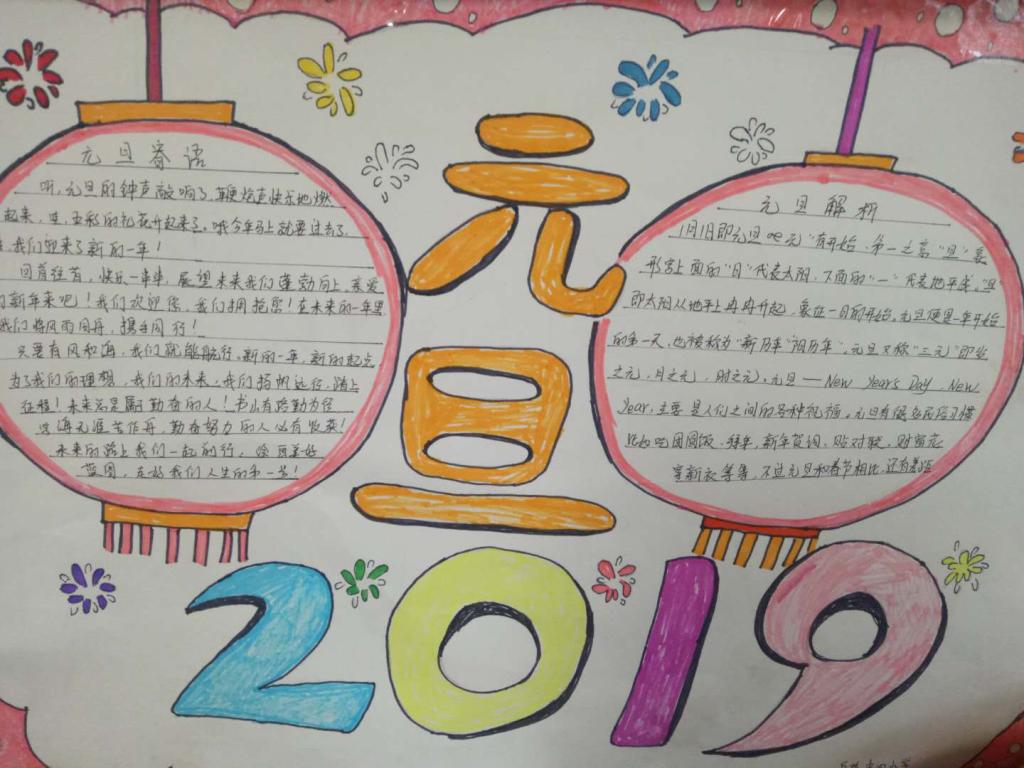 元旦寄语
听,元旦的钟声敲响了,鞭炮声快乐地燃
起来,五彩的礼花开起来了,哦今年马上就要过去了
我们迎来了新的一年!
回首往昔,快乐一串串,展望未来我们蓬勃向上,亲爱
的新年来吧!我们欢迎你,我们拥抱您!在未来的一年里
我们将风雨同舟,携手同行!
只要有风和海,我们就能航行,新的一年,新的起点
为了我们的理想,我们的未来,我们扬帆远行,踏上
征程!未来总是属于勤奋的人!书山有路勤为径
学海无涯苦作舟,勤奋努力的人必有收获!
未来的路上我们一起前行,绘画美好
蓝图,走好我们人生的第一步!
元旦
元旦解析
1月1日即元旦吧"元"有开始,第一之意"旦"意
形容上面的"日"代表太阳,下面的"一"代表地平线,"旦"
即太阳从地平上冉冉升起,象征一日的开始,元旦便是一年开始
的第一天,也被称为"新历年"阳历年",元旦又称"三元"即岁
之元,月之元,时之元,元旦—New Year's Day New
Year,主要是人们之间的各种祝福。元旦有很多民俗习惯
吃团圆饭、拜年,新年贺词,贴对联,贴窗花
穿新衣等等,不过元旦和春节相比,还有差距
2019